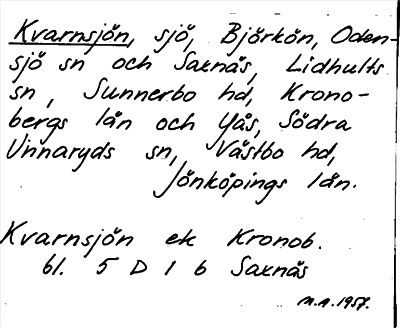 Kvarnsjön, sjö, Björkön, Oden-
sjö sn och Saknäs, Lidhults
sn, Sunnerbo hd, Krono-
bergs län och Yås, Södra
Unnaryds sn, Västbo hd,
Jönköpings län.
Kvarnsjön ek Kronob.
bl. 5 D 1 b Saknäs
M.A. 1957.